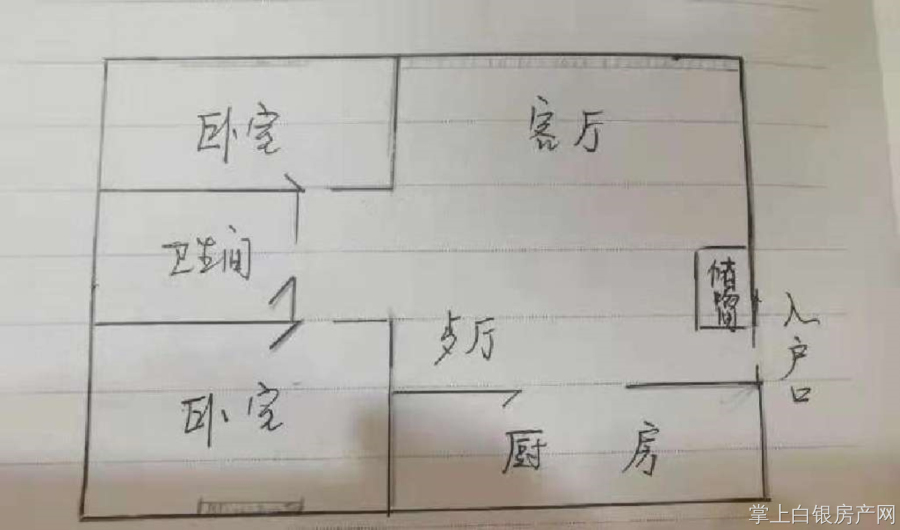 卧室
客厅
卫生间
储
间
入户口
歺厅
卧室
厨房
掌上白银房产网